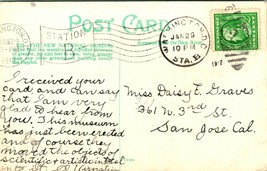 POST CARD
THE NEW NATIONAL MUSEUM
STATION
B
WASHINGTON, D.C.
JAN 29
10 PM
191
STA. B
I received your
card and can say
that I am very
glad to hear from
you. This museum
has just been erected
and of course they
moved the objects of
scientific & artistic
Miss Daisy L. Graves
361 N. 3rd St.
San Jose Cal.